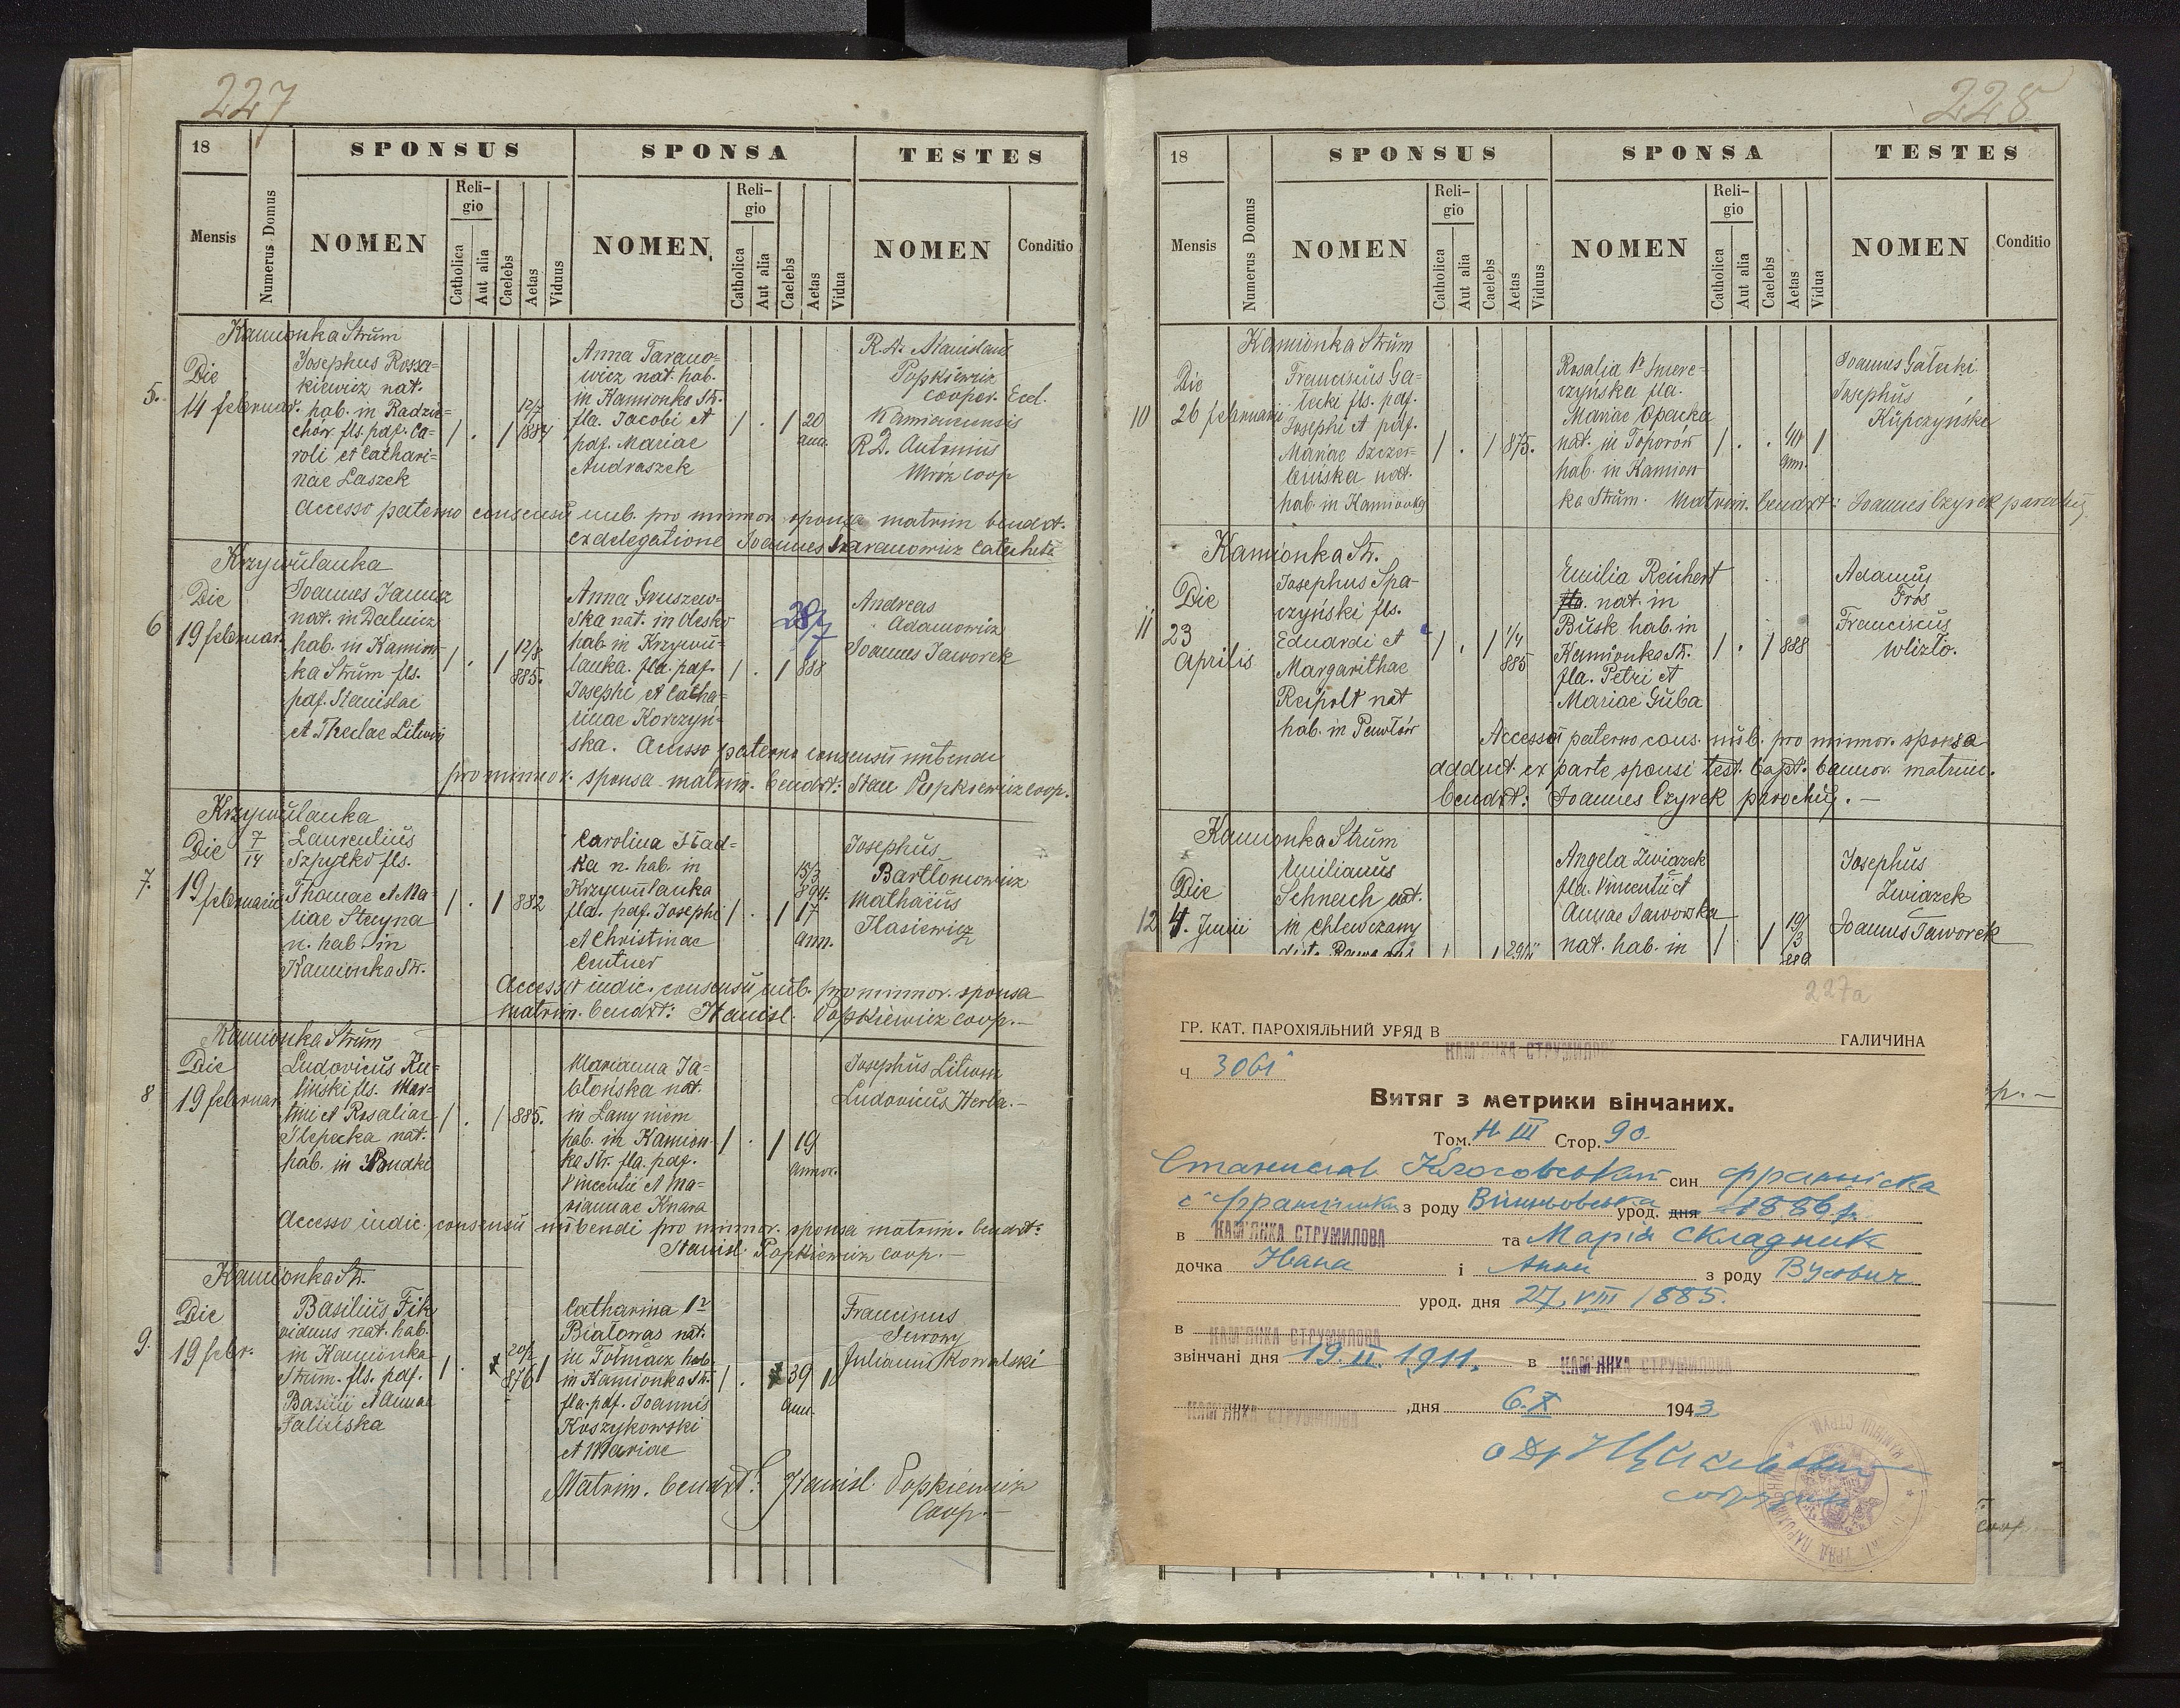 227
18
SPONSUS
SPONSA
TESTES
Mensis
Numerus Domus
NOMEN
Religio
Catholica
Aut alia
Caelebs
Aetas
Viduus
NOMEN
Religio
Catholica
Aut alia
Caelebs
Aetas
Vidua
NOMEN
Conditio
Kamionka Strum
5.
Die
14 februar.
Josephus Rossa=
kiewicz nat.
hab. in Radzie=
chów fls. pdf. Ca=
roli et Cathari=
nae Laszek
1 . 1
12/7
1884
Anna Tarano=
wicz nat. hab.
in Kamionka Str.
fla. Jacobi et
pdf. Mariae
Andraszek
1 . 1 20
ann.
Popkiewicz
cooper. Eccl.
R.D. Antonius
Mróz coop
Accesso paterno consensu nub. pro minnor. sponsa matrim bendxt.
ex delegatione Joannes Taranowicz Catecheta
Krzywulanka
6
Die
19 februar.
Joannes Janusz
nat. in Dalnicz
hab. in Kamion
ka Strum fls.
pdf. Stanislai
et Theclae Litwin
1 . 1
12/8
885.
Anna Gruszew=
ska nat. in Olesko
hab in Krzywu=
lanka. fla. pdf.
Josephi et Catha=
rinae Korczyń=
ska.
28/7
1 . 1 888
Andreas
Adamowicz
Joannes Jaworek
Accesso paterno consensu nubendi
pro minnor. sponsa matrim. bendxt: Stan Popkiewicz coop.
Krzywulanka
7.
Die 7/14
19 februarii
Laurentius
Szpytko fls.
Thomae et Ma=
riae Stryna
n. hab in
Kamionka Str.
1 . 1 882
Carolina Hład=
ka n. hab. in
Krzywulanka
fla. pdf. Josephi
et Christinae
Centner
15/3
894.
1 . 1 17
ann.
Josephus
Bartłomowicz
Mathaeus
Ilasiewicz
Accessit iudic. consensu nub. pro minnor. sponsa
matrim. bendxt: Stanisl. Popkiewicz coop. —
Kamionka Strum
8
Die
19 februar.
Ludovicus Ru=
liński fls. Mar=
tini et Rosaliae
Ślepecka nat.
hab. in Budki
1 . 1 885.
Marianna Ja=
błońska nat.
in Łany niem
hab. in Kamion
ka Str. fla. pdf.
Vincentii et Ma=
riannae Knara
1 . 1 19
annor.
Josephus Litwin
Ludovicus Herba. —
Accesso iudic. consensu nubendi pro minnor. sponsa matrim. bendxt:
Stanisl. Popkiewicz coop. —
Kamionka Str.
9.
Die
19 febr.
Basilius Fik
viduus nat. hab.
in Kamionka
Strum. fls. pdf.
Basilii et Annae
Falińska
20/2
876 1
Catharina 1v
Białowas nat.
in Tołmacz hab.
in Kamionka Str.
fla. pdf. Joannis
Koszykowski
et Mariae
39
ann.
Franciscus
Surowy
Julianus Kowalski
Matrim. bendxt: Stanisl. Popkiewicz
Coop. —
228
18
SPONSUS
SPONSA
TESTES
Mensis
Numerus Domus
NOMEN
Religio
Catholica
Aut alia
Caelebs
Aetas
Viduus
NOMEN
Religio
Catholica
Aut alia
Caelebs
Aetas
Vidua
NOMEN
Conditio
Kamionka Strum
10
Die
26 februarii
Franciscus Ga=
łecki fls. pdf.
Josephi et pdf.
Mariae Szczer=
bińska nat.
hab. in Kamionka
1 . 1 875.
Rosalia 1v Smere=
czyńska fla.
Mariae Opacka
nat. in Toporów
hab. in Kamion
ka Strum.
1 . . 40 1
ann.
Joannes Gałecki
Josephus
Kupczyński
Matrim. bendxt: Joannes Czyrek parochus
Kamionka Str.
11
Die
23
Aprilis
Josephus Spa=
czyński fls.
Eduardi et
Margarithae
Reipolt nat
hab. in Pawłów
1 . 1
1/4
885
Emilia Reichert
fla. nat. in
Busk hab. in
Kamionka Str.
fla. Petri et
Mariae Guba
1 . 1 888
Adamus
Gros
Franciscus
Wlizło.
Accessu paterno cons. nub. pro minnor. sponsa
adduct. ex parte sponsi test. bapt. bannor. matrim.
bendxt: Joannes Czyrek parochus. —
Kamionka Strum
12
Die
4. Junii
Aemilianus
Schneich nat.
in Chlewczany
Angela Zwiazek
fla. Vincentii et
Annae Jaworska
nat. hab. in
1 . 1
19/3
889
Josephus
Zwiazek
Joannes Jaworek
227a
ГР. КАТ. ПАРОХІЯЛЬНИЙ УРЯД В КАМ'ЯНКА СТРУМИЛОВА ГАЛИЧИНА
Ч 3061
Витяг з метрики вінчаних.
Том. N III Стор. 90.
Станислав Клосовський син Франціска
і Францішки з роду Вишньовська урод. дня 1886 р.
в КАМ'ЯНКА СТРУМИЛОВА та Марія Складник
дочка Івана і Анни з роду Вусович
урод. дня 27. VIII 1885.
в КАМ'ЯНКА СТРУМИЛОВА
звінчані дня 19. II. 1911. в КАМ'ЯНКА СТРУМИЛОВА
КАМ'ЯНКА СТРУМИЛОВА ,дня 6. X 1943
coop.